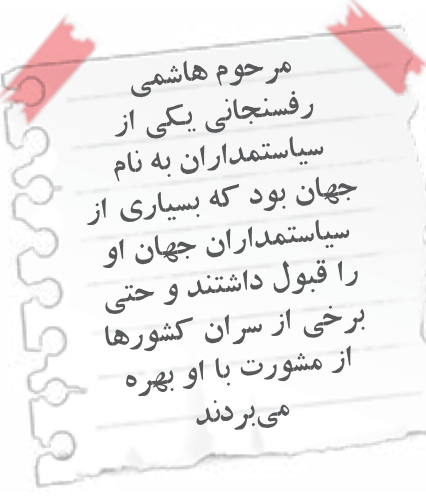 مرحوم هاشمی
رفسنجانی یکی از
سیاستمداران به نام
جهان بود که بسیاری از
سیاستمداران جهان او
را قبول داشتند و حتی
برخی از سران کشورها
از مشورت با او بهره
می‌بردند